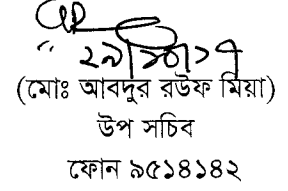 (মোঃ আবদুর রউফ মিয়া)
উপ সচিব
ফোন ৯৫১৪১৪২